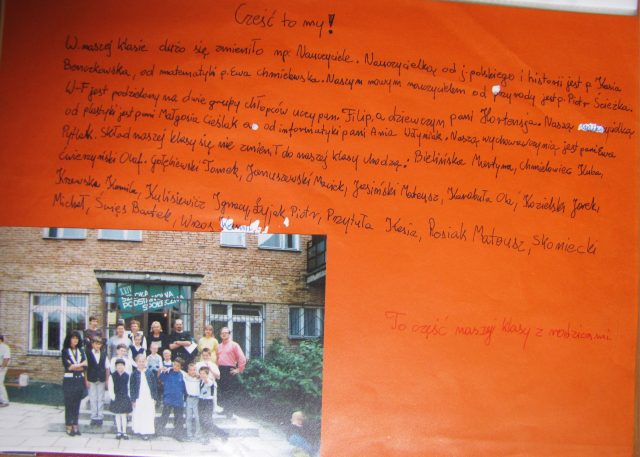 Cześć to my!
W naszej klasie dużo się zmieniło np. Nauczyciele. Nauczycielką od j. polskiego i historii jest p. Kasia
Bonuzkowska, od matematyki p. Ewa Chmielewska. Naszym nowym nauczycielem od przyrody jest p. Piotr Ścieżka.
W-F jest podzielony na dwie grupy chłopców uczy pan Filip, a dziewczyn pani Hortensja. Naszą
od plastyki jest pani Małgosia Cieślak a od informatyki pani Ania Użyniak. Naszą wychowawczynią jest pani Ewa
Pytlak. Skład naszej klasy się nie zmienił do naszej klasy chodzą: Bielińska Martyna, Chmielowiec Kuba,
Ćwierzyński Olaf, Gołębiewski Tomek, Januszewski Maciek, Jasiński Mateusz, Karabuła Ola, Kozielski Jarek,
Krzewska Kamila, Kulisiewicz Ignacy, Łyjak Piotr, Przytuła Kasia, Rosiak Mateusz, Słoniecki
Michał, Święs Bartek, Wrzos
LIII
SZKOŁA
PODSTAWOWA
SPOŁECZNA
To część naszej klasy z rodzicami